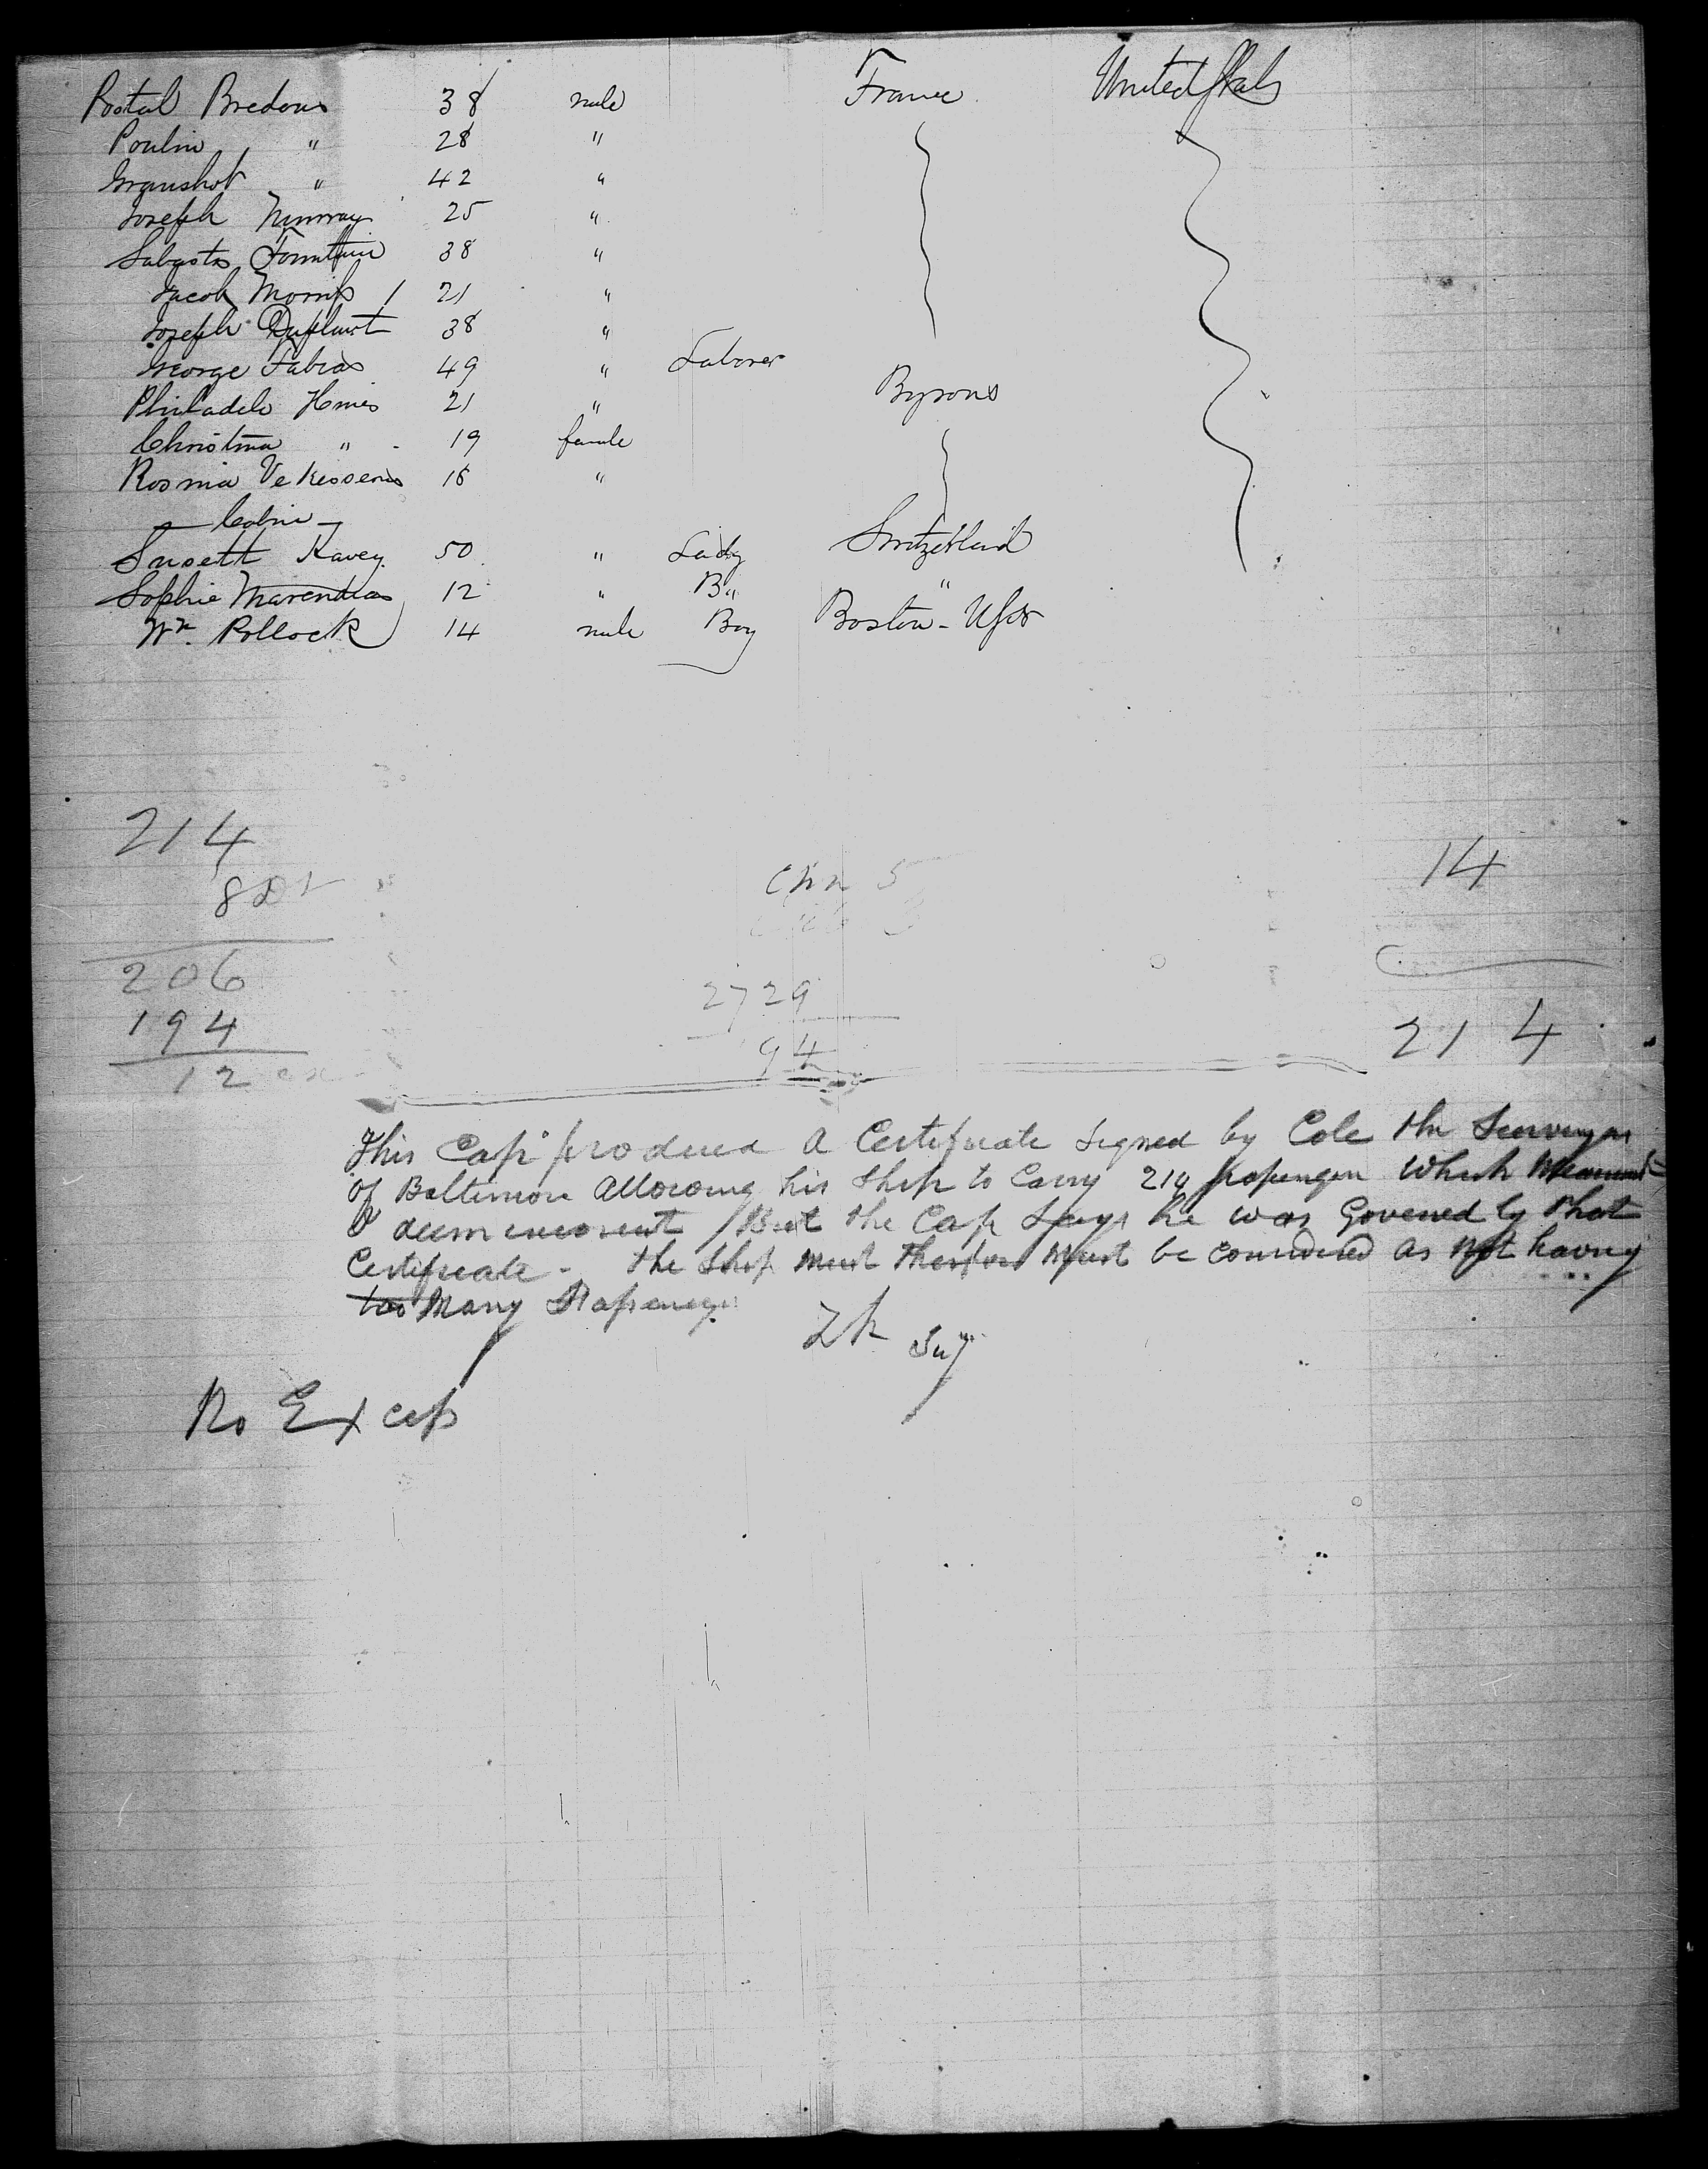 Postal Bredous 38 male France United Stats
Poulin " 28 "
Granshot " 42 "
Joseph Nunray 25 "
Sabasta Fountain 38 "
Jacob Morris 21 "
Joseph Duplant 38 "
George Fabias 49 " Laborer
Philadele Hmies 21 " Byrons
Christina " 19 female
Rosmia Ve Kessends 18 "
— Cabin —
Susett Kavey 50 " Lady Switzerland
Sophie Marendas 12 " Do "
Wm. Pollock 14 male Boy Boston - Usts
214
14
8
Chn 5
206
2729
194
214
94
12 ex
This Capt produced a Certificate Signed by Cole the Surveyor
of Baltimore Allowing his Ship to Carry 214 passengers Which Measurmt
I deem incorrect / But the Capt Says he was Governed by that
Certificate - the Ship must Therefore Must be considered as Not having
too Many Passengers
Sur
No Excess